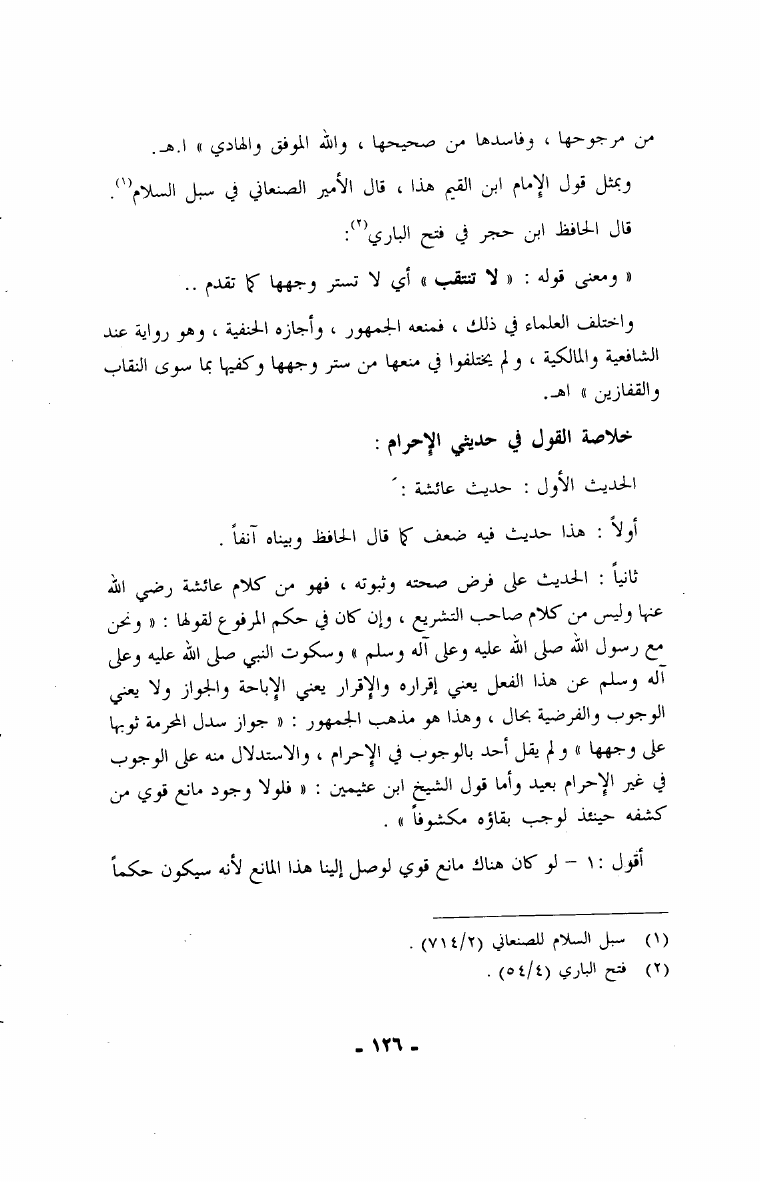 من مرجوحها ، وفاسدها من صحيحها ، والله الموفق والهادي » ا.هـ.
وبمثل قول الإمام ابن القيم هذا ، قال الأمير الصنعاني في سبل السلام(١).
قال الحافظ ابن حجر في فتح الباري(٢):
« ومعنى قوله : « لا تنتقب » أي لا تستر وجهها كما تقدم ..
واختلف العلماء في ذلك ، فمنعه الجمهور ، وأجازه الحنفية ، وهو رواية عند
الشافعية والمالكية ، ولم يختلفوا في منعها من ستر وجهها وكفيها بما سوى النقاب
والقفازين » اهـ.
خلاصة القول في حديثي الإحرام :
الحديث الأول : حديث عائشة :
أولاً : هذا حديث فيه ضعف كما قال الحافظ وبيناه آنفاً .
ثانياً : الحديث على فرض صحته وثبوته ، فهو من كلام عائشة رضي الله
عنها وليس من كلام صاحب التشريع ، وإن كان في حكم المرفوع لقولها : « ونحن
مع رسول الله صلى الله عليه وعلى آله وسلم » وسكوت النبي صلى الله عليه وعلى
آله وسلم عن هذا الفعل يعني إقراره والإقرار يعني الإباحة والجواز ولا يعني
الوجوب والفرضية بحال ، وهذا هو مذهب الجمهور : « جواز سدل المحرمة ثوبها
على وجهها » ولم يقل أحد بالوجوب في الإحرام ، والاستدلال منه على الوجوب
في غير الإحرام بعيد وأما قول الشيخ ابن عثيمين : « فلولا وجود مانع قوي من
كشفه حينئذ لوجب بقاؤه مكشوفاً » .
أقول : ١ – لو كان هناك مانع قوي لوصل إلينا هذا المانع لأنه سيكون حكماً
(١) سبل السلام للصنعاني (٧١٤/٢) .
(٢) فتح الباري (٥٤/٤) .
- ١٢٦ -